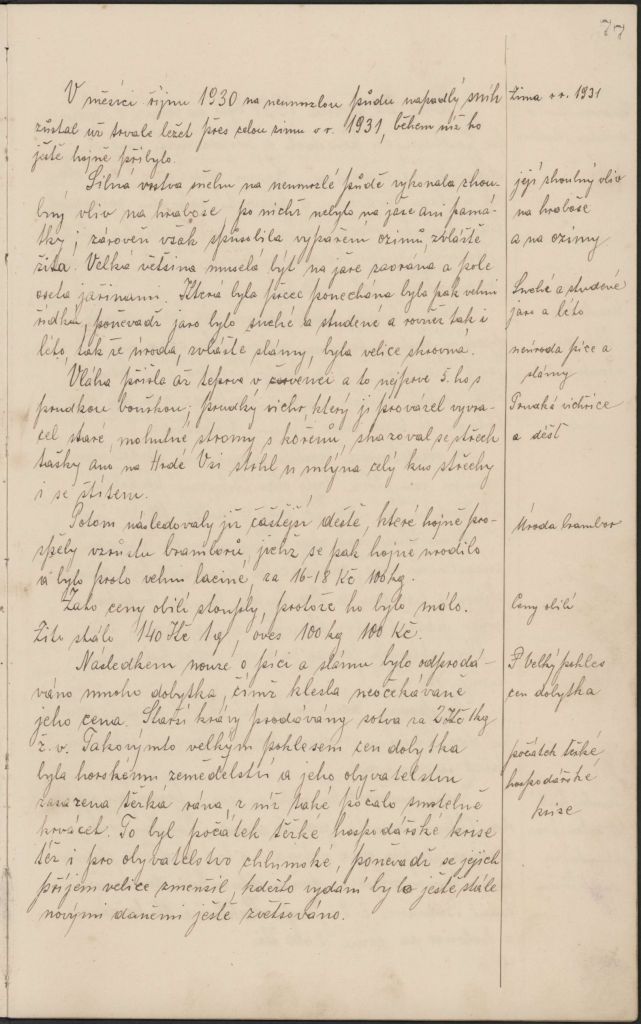 77
V měsíci říjnu 1930 na neumrzlou půdu napadlý sníh
zůstal už trvale ležet přes celou zimu v r. 1931, během níž ho
ještě hojně přibylo.
Silná vrstva sněhu na neumrzlé půdě vykonala zhou-
bný vliv na hraboše, po nichž nebylo na jaře ani pamá-
tky; zároveň však způsobila vypaření ozimů, zvláště
žita. Velká většina musela být na jaře zaorána a pole
oseta jařinami. Která byla přece ponechána byla pak velmi
řídká, poněvadž jaro bylo suché a studené a rovněž tak i
léto, takže úroda, zvláště slámy, byla velice skrovná.
Vláha přišla až teprve v červenci a to nejprve 5. ho s
prudkou bouřkou; prudký vichr, který ji provázel vyvra-
cel staré, mohutné stromy s kořenů, shazoval se střech
tašky, ano na Hrdé Vsi strhl u mlýna celý kus střechy
i se štítem.
Potom následovaly již častější deště, které hojně pro-
spěly vzrůstu bramborů, jichž se pak hojně urodilo
a bylo proto velmi laciné, za 16-18 Kč 100 kg.
Zato ceny obilí stouply, protože ho bylo málo.
Žito stálo 140 Kč 1 q, oves 100 kg 100 Kč.
Následkem nouze o píci a slámu bylo odprodá-
váno mnoho dobytka, čímž klesla neočekávaně
jeho cena. Starší krávy prodávány sotva za 2 Kč 1 kg
ž. v. Takovýmto velkým poklesem cen dobytka
byla horskému zemědělství a jeho obyvatelstvu
zasazena těžká rána, z níž také počalo smrtelně
krvácet. To byl počátek těžké hospodářské krise
též i pro obyvatelstvo chlumské, poněvadž se jejich
příjem velice zmenšil, kdežto vydání bylo ještě stále
novými daněmi ještě zvětšováno.
Zima v r. 1931
její zhoubný vliv
na hraboše
a na ozimy
Suché a studené
jaro a léto
neúroda píce a
slámy
Prudká vichřice
a déšť
Úroda brambor
Ceny obilí
Velký pokles
cen dobytka
počátek těžké
hospodářské
krise